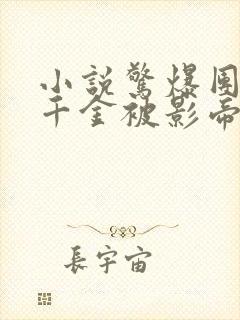 小說驚爆團
千金被影帝
長宇宙